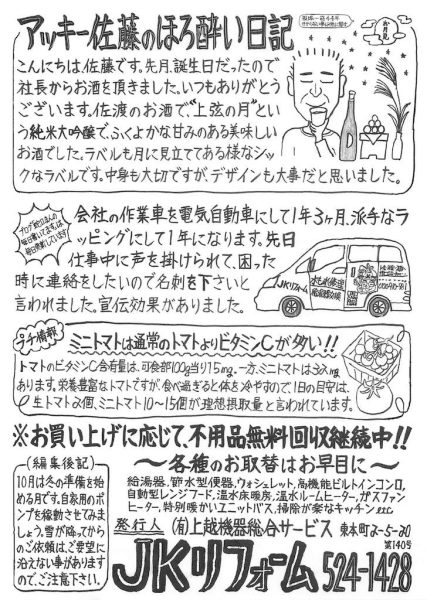 アッキー佐藤のほろ酔い日記
こんにちは、佐藤です。先月、誕生日だったので
社長からお酒を頂きました。いつもありがとう
ございます。佐渡のお酒で、"上弦の月"とい
う純米大吟醸で、ふくよかな甘みのある美味しい
お酒でした。ラベルも月に見立ててある様なシッ
クなラベルです。中身も大切ですが、デザインも大事だと思いました。
会社の作業車を電気自動車にして1年3ヶ月、派手なラ
ッピングにして1年になります。先日
仕事中に声を掛けられて、困った
時に連絡をしたいので名刺を下さいと
言われました。宣伝効果がありました。
JKリフォーム
プチ情報
ミニトマトは通常のトマトよりビタミンCが多い!!
トマトのビタミンC含有量は、可食部100g当り15mg。一方、ミニトマトは32mg
あります。栄養豊富なトマトですが、食べ過ぎると体を冷やすので、1日の目安は、
生トマト2個、ミニトマト10~15個が理想摂取量と言われています。
※お買い上げに応じて、不用品無料回収継続中!!
~各種のお取替はお早目に~
給湯器、節水型便器、ウォシュレット、高機能ビルトインコンロ、
自動型レンジフード、温水床暖房、温水ルームヒーター、ガスファン
ヒーター、特別暖かいユニットバス、掃除が楽なキッチンetc
(編集後記)
10月は冬の準備を始
める月です。自家用のポ
ンプを稼動させてみま
しょう。雪が降ってから
のご依頼は、ご要望に
沿えない事があります
ので、ご注意下さい。
発行人 (有)上越機器総合サービス 東本町2-5-20
第140号
JKリフォーム 524-1428